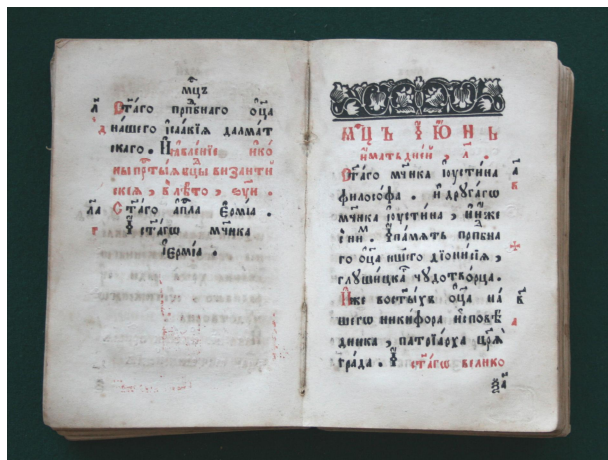 мцъ
л҃ Ст҃аго прпбнаго оц҃а
д нашего ісаакїѧ далмат
скаго . И ꙗвленїе ико
ны прт҃ыѧ бц҃ы византи
скїѧ , в лѣто ,
л҃а Ст҃аго ап҃ла Єрмїа .
г И ст҃агѡ мч҃ника
Єрмїа .
Мц҃ъ Їюнь
имать дней , л҃ .
Ст҃аго мч҃ника іꙋстина а҃
философа . и дрꙋгагѡ в
мч҃ника іꙋстина , и иже
с ни м . И память прпбна
го оц҃а ншего дїонисїѧ ,
глꙋшицка чꙋдотворца .
Иже во ст҃ыхъ оц҃а на в҃
шегѡ никифора исповѣ д
дника , патрїарха цр҃ѧ
града . И ст҃агѡ велико